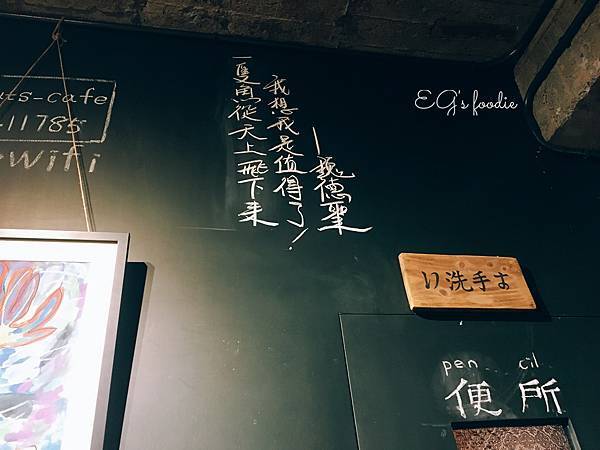 uts-cafe
11785
wifi
一隻魚從天上飛下来
我想我是值得了！
—魏德聖
EG's foodie
お手洗い
pen cil
便所